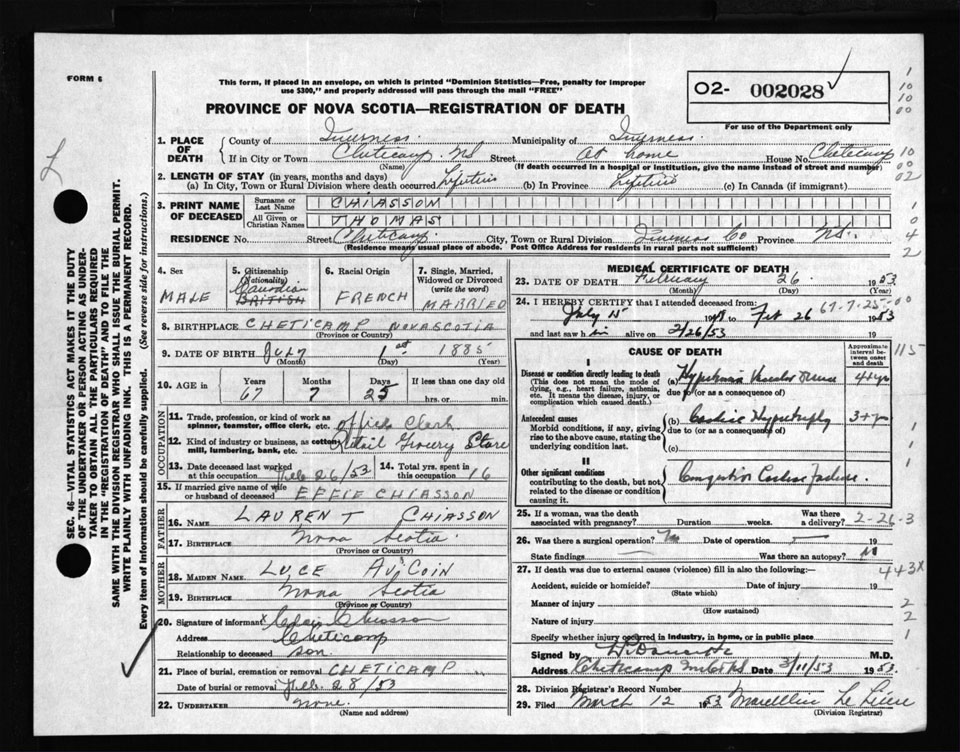 FORM 6
This form, if placed in an envelope, on which is printed "Dominion Statistics—Free, penalty for improper
use $300," and properly addressed will pass through the mail "FREE"
PROVINCE OF NOVA SCOTIA—REGISTRATION OF DEATH
O2- 002028
For use of the Department only
1. PLACE OF DEATH
County of Inverness. Municipality of Inverness.
If in City or Town Cheticamp. NS Street At home House No. Cheticamp
(Name) (If death occurred in a hospital or institution, give the name instead of street and number)
2. LENGTH OF STAY (in years, months and days)
(a) In City, Town or Rural Division where death occurred Lifetime (b) In Province Lifetime (c) In Canada (if immigrant)
3. PRINT NAME OF DECEASED
Surname or Last Name CHIASSON
All Given or Christian Names THOMAS
RESIDENCE No. Street Cheticamp City, Town or Rural Division Inverness Co Province N.S.
(Residence means usual place of abode. Post Office Address for residents in rural parts not sufficient)
4. Sex
MALE
5. Citizenship (Nationality)
Canadian
BRITISH
6. Racial Origin
FRENCH
7. Single, Married, Widowed or Divorced (write the word)
MARRIED
8. BIRTHPLACE CHETICAMP NOVA SCOTIA
(Province or Country)
9. DATE OF BIRTH July 1st 1885
(Month) (Day) (Year)
10. AGE in Years Months Days If less than one day old
67 7 25 hrs. or min.
OCCUPATION
11. Trade, profession, or kind of work as
spinner, teamster, office clerk, etc. Clerk
12. Kind of industry or business, as cotton
mill, lumbering, bank, etc. Retail Grocery Store
13. Date deceased last worked
at this occupation Feb 26/53
14. Total yrs. spent in
this occupation 16
15. If married give name of wife
or husband of deceased EFFIE CHIASSON
FATHER
16. NAME LAURENT CHIASSON
17. BIRTHPLACE Nova Scotia
(Province or Country)
MOTHER
18. MAIDEN NAME LUCE AUCOIN
19. BIRTHPLACE Nova Scotia
(Province or Country)
20. Signature of informant Chiasson
Address Cheticamp
Relationship to deceased son.
21. Place of burial, cremation or removal CHETICAMP
Date of burial or removal Feb. 28/53
22. UNDERTAKER none.
(Name and address)
MEDICAL CERTIFICATE OF DEATH
23. DATE OF DEATH February 26 1953
(Month) (Day) (Year)
67-7-25-00
24. I HEREBY CERTIFY that I attended deceased from:
July 15 19 to Feb 26 1953
and last saw him alive on 2/26/53
CAUSE OF DEATH
Approximate interval between onset and death
I
Disease or condition directly leading to death
(This does not mean the mode of dying, e.g., heart failure, asthenia, etc. It means the disease, injury, or complication which caused death.)
(a) Vascular Disease 4+yrs
due to (or as a consequence of)
Antecedent causes
Morbid conditions, if any, giving rise to the above cause, stating the underlying condition last.
(b) Cardiac Hypertrophy 3+yr
due to (or as a consequence of)
(c)
II
Other significant conditions
contributing to the death, but not related to the disease or condition causing it.
Congestive Cardiac Failure.
25. If a woman, was the death
associated with pregnancy? Duration weeks.
Was there a delivery? 2-26-3
26. Was there a surgical operation? No Date of operation 19
State findings Was there an autopsy? No
27. If death was due to external causes (violence) fill in also the following: 443X
Accident, suicide or homicide? Date of injury 19
(State which)
Manner of injury
(How sustained)
Nature of injury
Specify whether injury occurred in industry, in home, or in public place
Signed by M.D.
Address Cheticamp Date 3/11/53 1953.
28. Division Registrar's Record Number
29. Filed March 12 1953
(Division Registrar)
SEC. 46—VITAL STATISTICS ACT MAKES IT THE DUTY
OF THE UNDERTAKER OR PERSON ACTING AS UNDER-
TAKER TO OBTAIN ALL THE PARTICULARS REQUIRED
IN THE "REGISTRATION OF DEATH" AND TO FILE THE
SAME WITH THE DIVISION REGISTRAR WHO SHALL ISSUE THE BURIAL PERMIT.
WRITE PLAINLY WITH UNFADING INK. THIS IS A PERMANENT RECORD.
Every item of information should be carefully supplied. (See reverse side for instructions.)
1
10
10
00
10
00
02
1
0
4
2
115
1
1
2
2
1